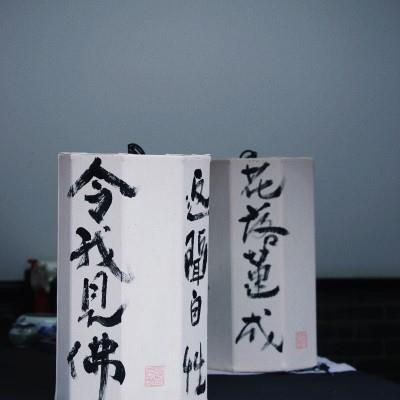 花落蓮成
返聞自性
令我見佛